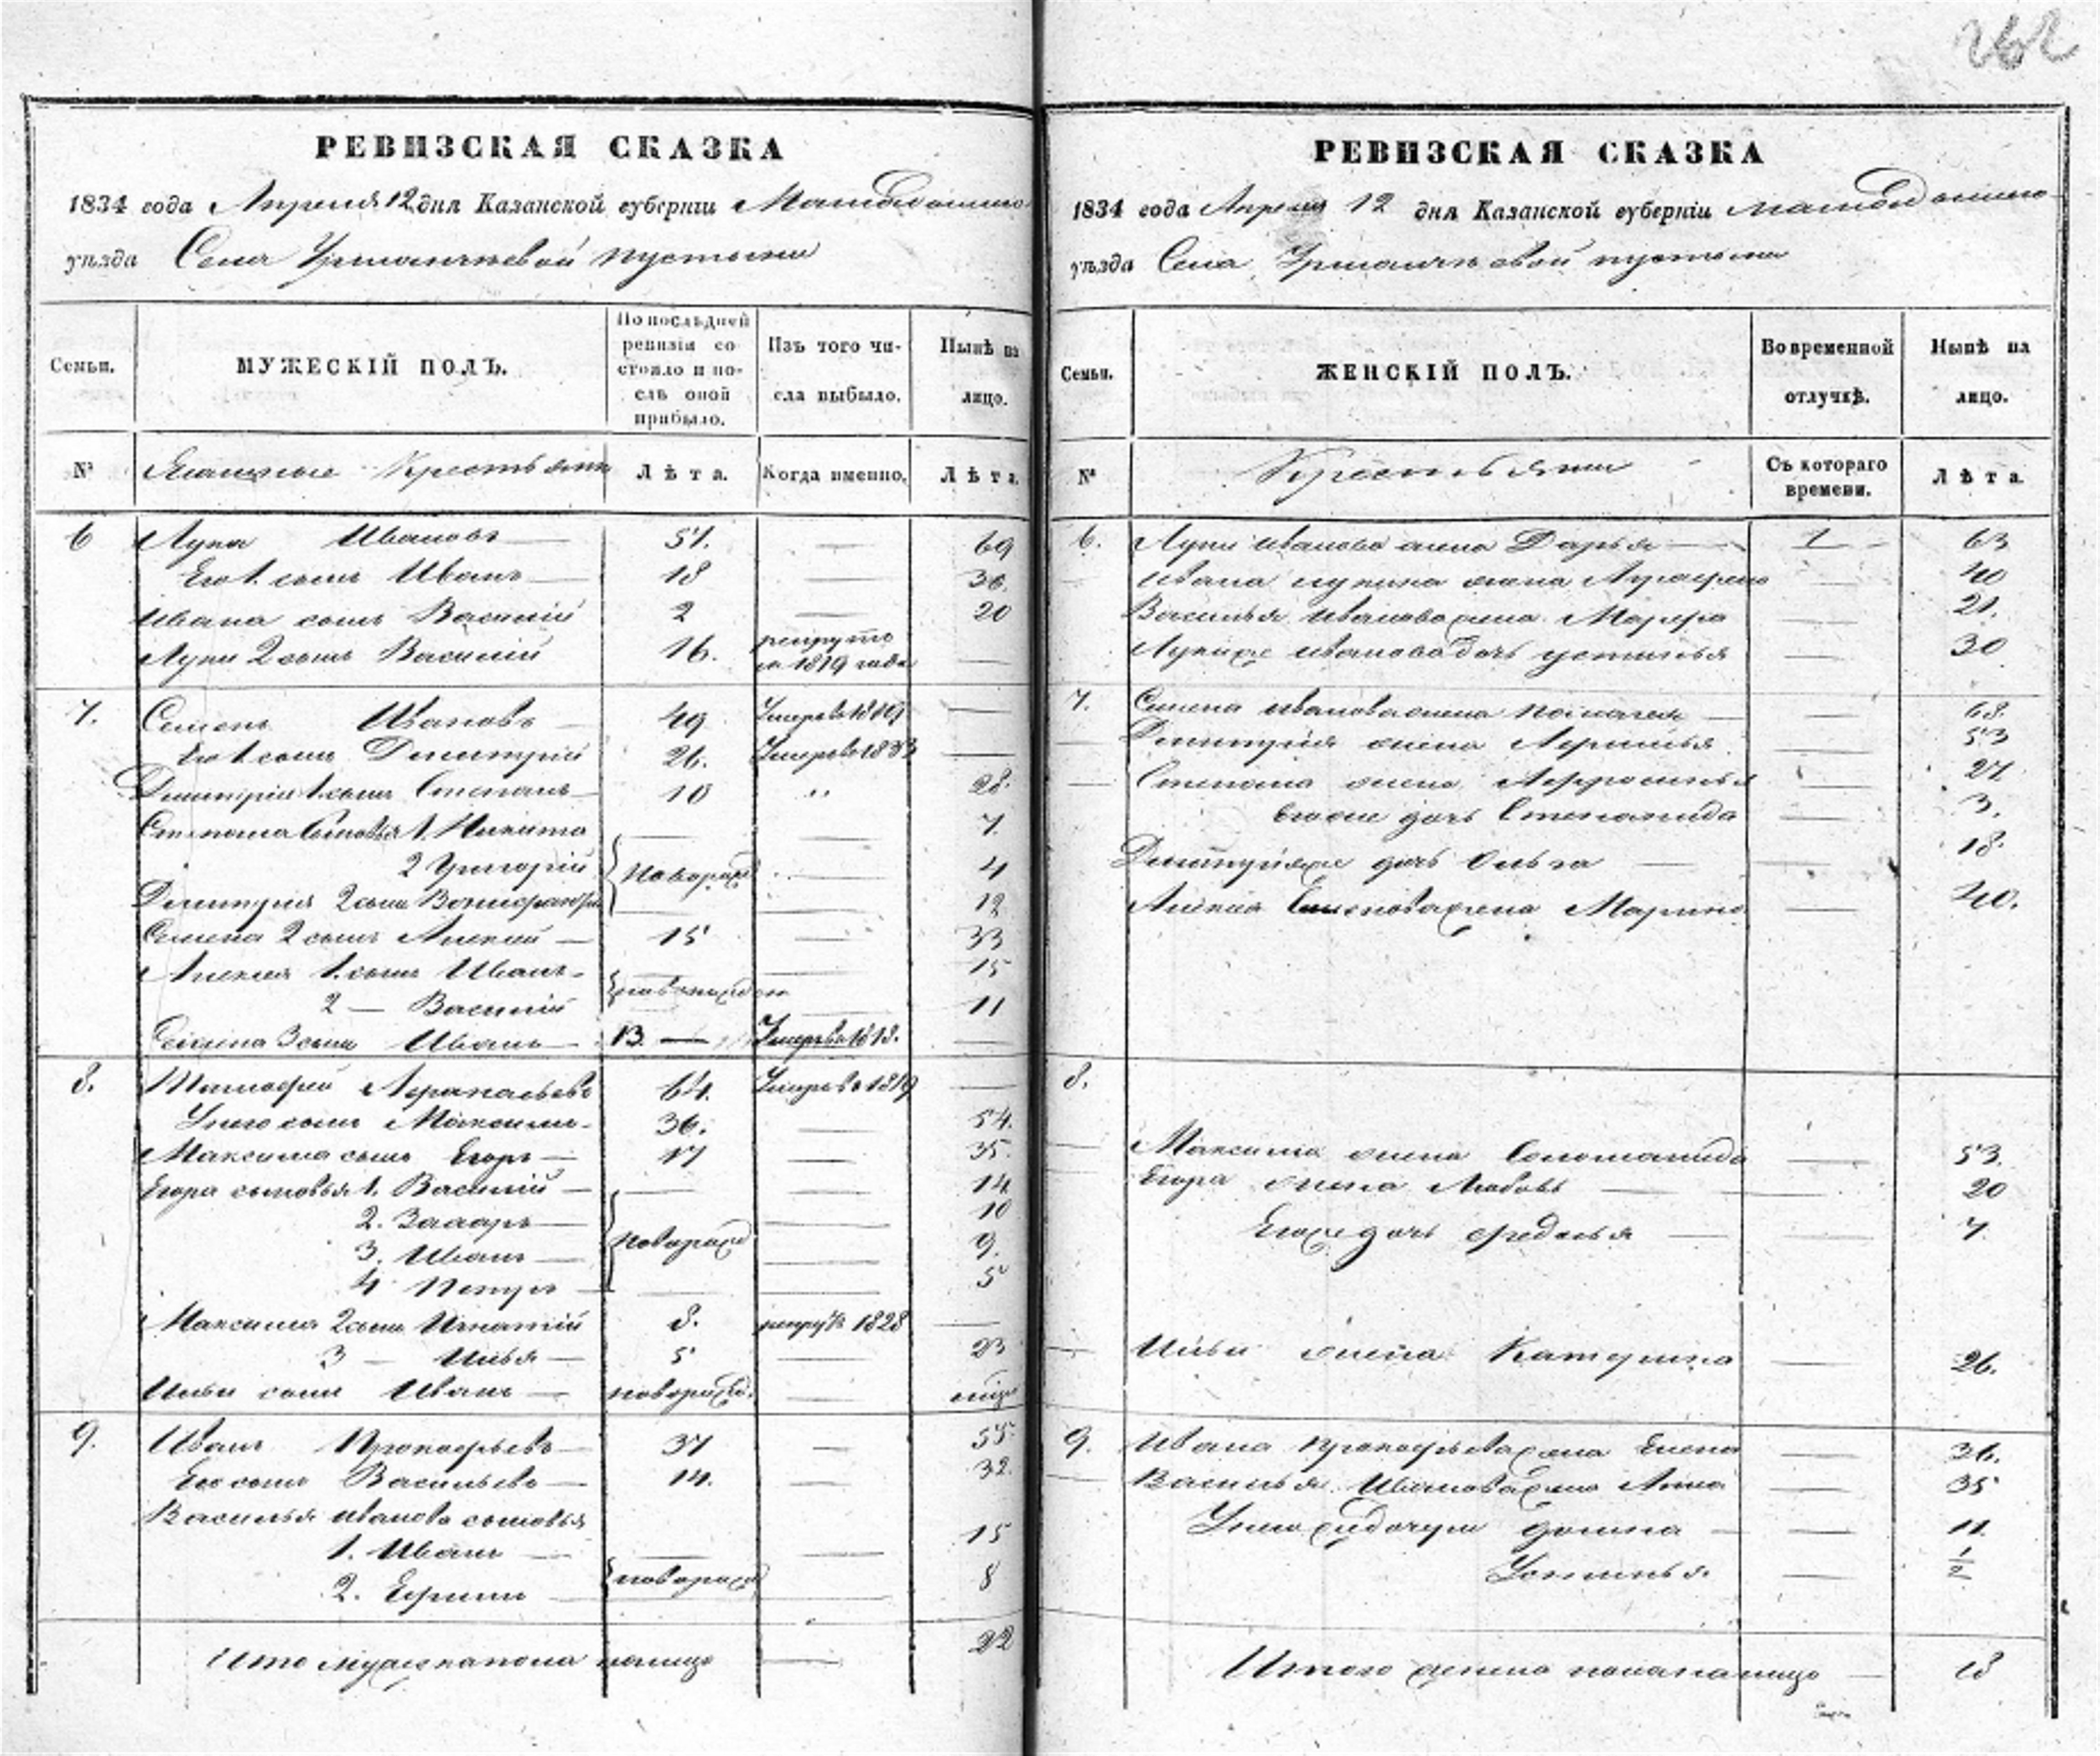 262
РЕВИЗСКАЯ СКАЗКА
1834 года Апреля 12 дня Казанской губерніи
уѣзда Села пустыни
Семьи.
МУЖЕСКІЙ ПОЛЪ.
По послѣдней ревизіи состояло и послѣ оной прибыло.
Изъ того числа выбыло.
Нынѣ на лицо.
№
Крестьяне
Лѣта.
Когда именно.
Лѣта.
6 Лука Ивановъ — 51. — 69
Его 1. сынъ Иванъ — 18 — 36.
Ивана сынъ Василій 2 — 20
Луки 2 сынъ Василій 16. рекруто в 1819 года —
7. Семенъ Ивановъ — 49 Умеръ в 1819 —
Его 1 сынъ Дмитрій 26. Умеръ в 1833 —
Дмитрія 1. сынъ Степанъ — 10 „ 28.
Степана сыновья 1. Никита — — 7.
2 Григорій новорожд — 4
Дмитрія 2 сынъ — — 12
Семена 2 сынъ Алексей — 15 — 33
Алексея 1. сынъ Иванъ — — — 15
2 — Василій новорожден — 11
Семена 3 сынъ Иванъ — 13. — Умеръ в 1818. —
8. Тимофей Афанасьевъ 64. Умеръ в 1819 —
У него сынъ Максимъ — 36. — 54.
Максима сынъ Егоръ — 17 — 35.
Егора сыновья 1. Василій — — — 14
2. Захаръ — — 10
3. Иванъ — новорожд — 9.
4 Петръ — — — 5
Максима 2 сынъ Игнатій 8. рекрут 1828 —
3 — Илья — 5 — 23
Ильи сынъ Иванъ — новорожд. —
9. Иванъ Прокофьевъ — 37 — 55.
Его сынъ Васильевъ — 14. — 32.
Василья Иванова сыновья
1. Иванъ — — — 15
2. Ефимъ новорожд — 8
Итого мужеска пола налицо — 22
РЕВИЗСКАЯ СКАЗКА
1834 года Апреля 12 дня Казанской губерніи
уѣзда Села пустыни
Семьи.
ЖЕНСКІЙ ПОЛЪ.
Во временной отлучкѣ.
Нынѣ на лицо.
№
Крестьяне
Съ котораго времени.
Лѣта.
6. Луки Иванова жена Дарья — — 63
Ивана Лукина жена — 40
Василья Иванова жена Марфа — 21.
Луки же Иванова дочь Устинья — 30
7. Семена Иванова жена — 68.
Дмитрія жена — 53
Степана жена Афросинья — 27
Его же дочь Степанида — 3.
Дмитрія же дочь Ольга — — 18.
Алексея Семенова жена Марина — 40.
8.
Максима жена Соломанида — 53.
Егора жена Любовь — — 20
Его же дочь Федосья — — 7.
Ильи жена Катерина — 26.
9. Ивана Прокофьева жена Елена — 36.
Василья Иванова жена Анна — 35
У него же дочери Домна — — 11.
Устинья. — 1/2
Итого женска пола налицо — 18